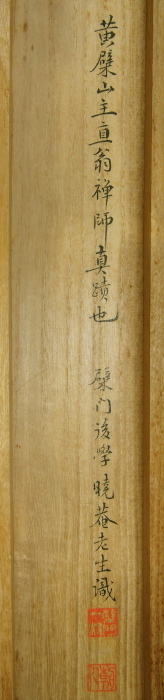 黄檗山主直翁禅師真蹟也　檗门後學曉菴老生識